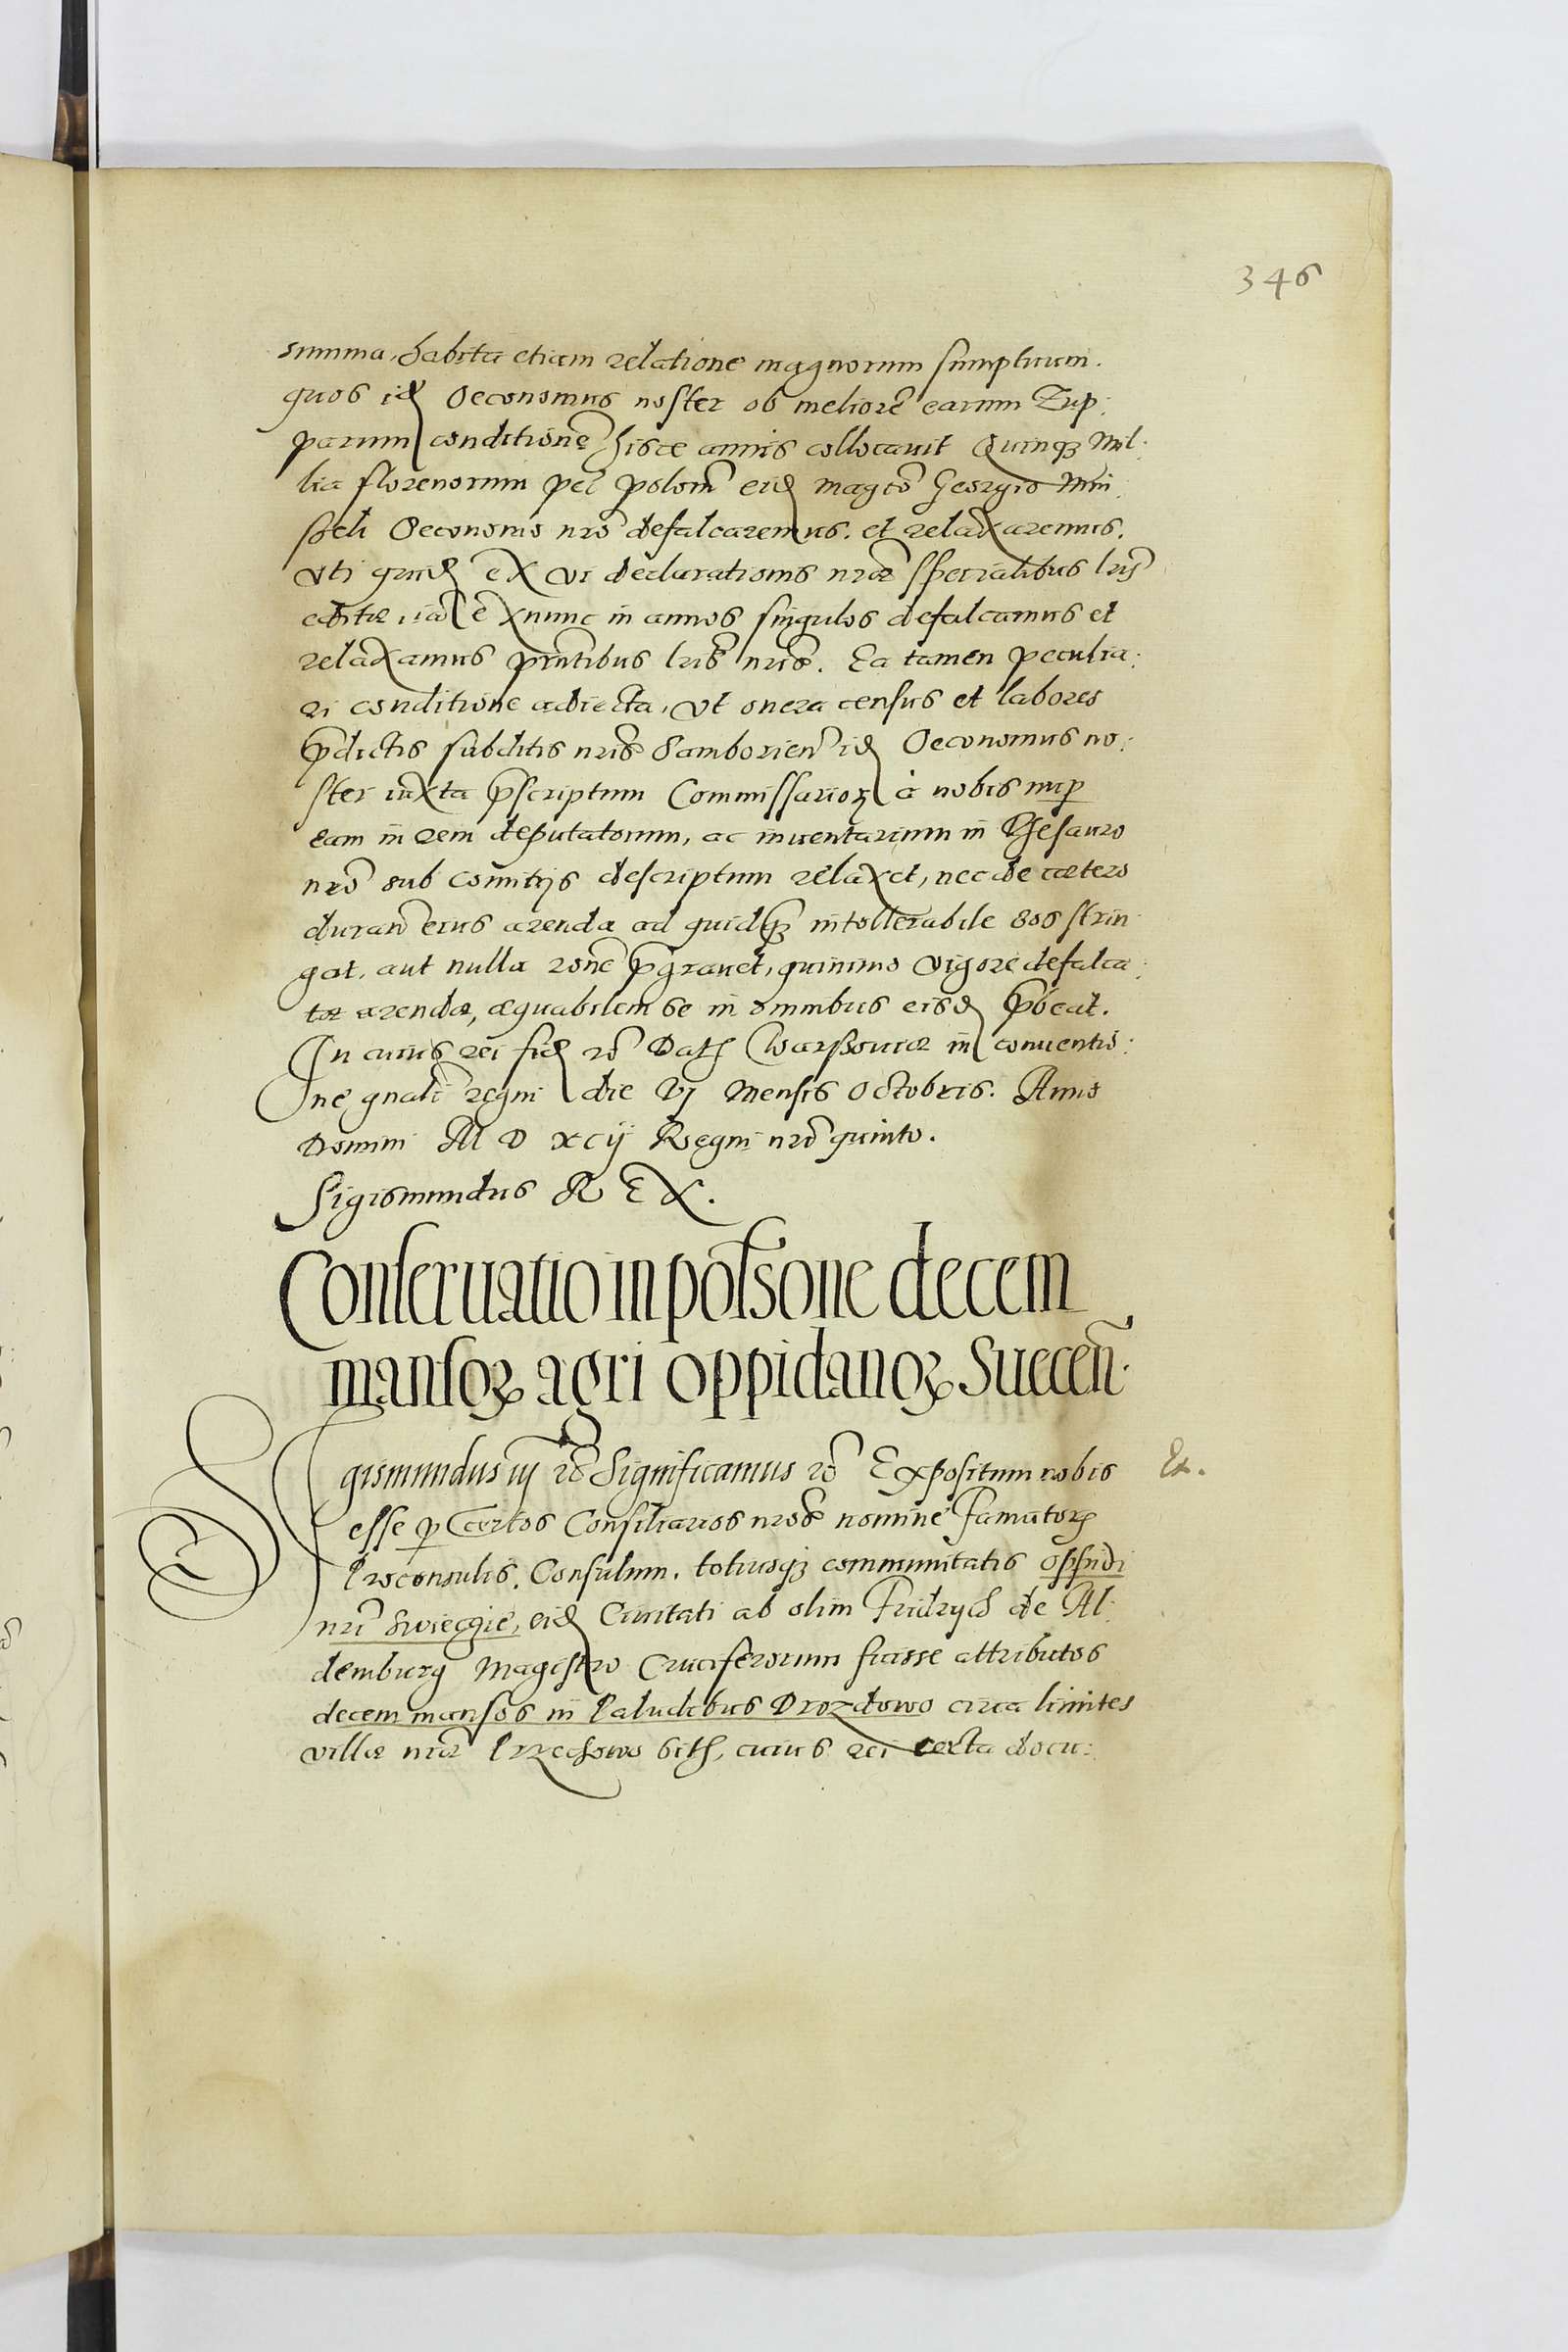 346
summa, habita etiam relatione magnorum sumptuum.
quos idē Oeconomus noster ob meliorē earum Zup:
parum conditionē hisce annis collocauit Quinq3 Mil:
lia florenorum pec̄ polon̄ eidē magc̄o Georgio Mni:
schi Oeconomo nr̄o defalcaremus. et relaxaremus.
vti quidē ex vi declarationis nr̄æ specialibus lr̄is
editæ, iā ex nunc in annos singulos defalcamus et
relaxamus pn̄tibus lr̄is nr̄is. Ea tamen peculia:
ri conditione adiecta, vt onera census et labores
p̄dictis subditis nr̄is Samborien̄ idē Oeconomus no:
ster iuxta p̄scriptum Commissarioꝝ à nobis nuꝑ
eam in rem deputatorum, ac inuentarium in Thesauro
nr̄o sub comitijs descriptum relaxet, nec de cætero
duran̄ eius arenda ad quidq3 intollerabile eos strin
gat, aut nulla rōne p̄grauet, quinimo vigore defalca:
tæ arendæ, æquabilem se in omnibus eisdē p̄beat.
In cuius rei fidē rc̄ Datꝭ Warssouiæ in conuentio:
ne gnāli regni die VI Mensis Octobris. Anno
Domini M D xcij Regni nr̄o quinto.
Sigismundus REX.
Conseruatio in poss̄one decem
mansoꝝ agri oppidanoꝝ Suecen̄.
Sigismundus iij rc̄ Significamus rc̄ Expositum nobis
Ex.
esse ꝑ certos Consiliarios nr̄os nomine Famatorꝭ
Proconsulis, Consulum, totiusq3 communitatis oppidi
nr̄i Swiecgie, eidē Ciuitati ab olim Fridrych de Al:
demburg Magistro Cruciferorum fuisse attributos
decem mansos in Paludibus Drozdowo circa limites
villæ nr̄æ Przechowo sitꝭ, cuius rei certa docu: